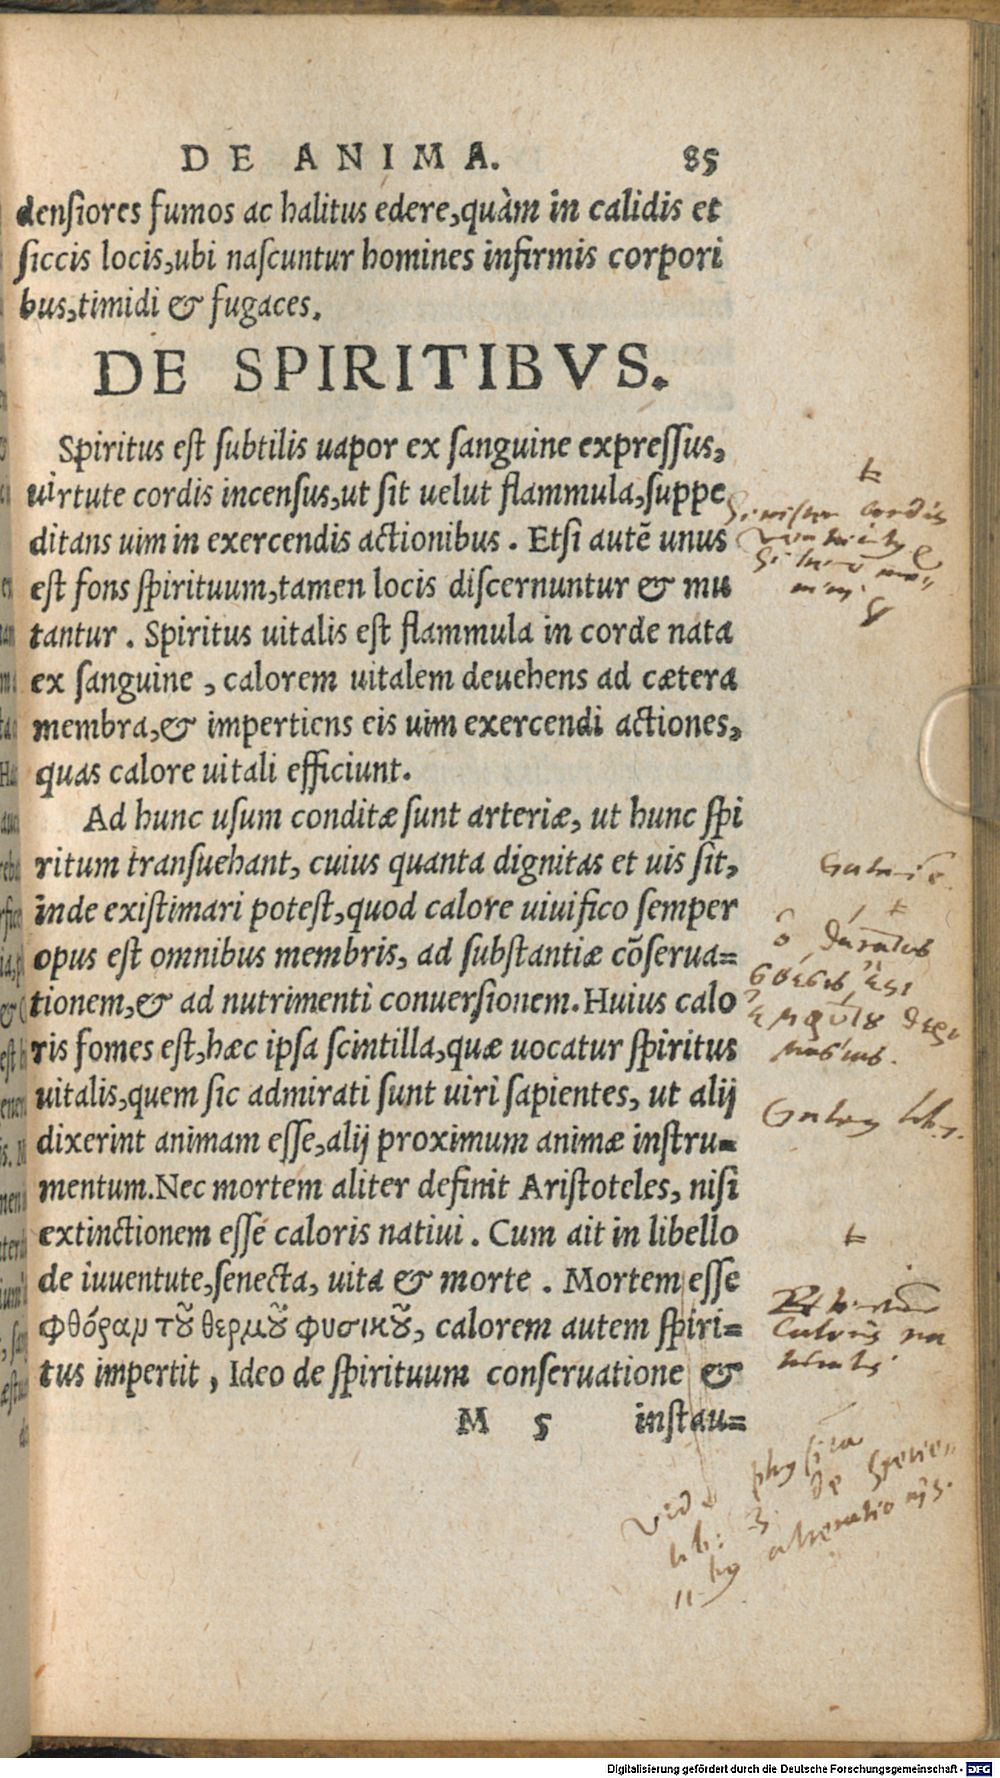 DE ANIMA. 85
densiores fumos ac halitus edere, quàm in calidis et
siccis locis, ubi nascuntur homines infirmis corpori
bus, timidi & fugaces.
DE SPIRITIBVS.
Spiritus est subtilis uapor ex sanguine expressus,
uirtute cordis incensus, ut sit uelut flammula, suppe
ditans uim in exercendis actionibus. Etsi autẽ unus
est fons spirituum, tamen locis discernuntur & mu
tantur. Spiritus uitalis est flammula in corde nata
ex sanguine, calorem uitalem deuehens ad cætera
membra, & impertiens eis uim exercendi actiones,
quas calore uitali efficiunt.
Ad hunc usum conditæ sunt arteriæ, ut hunc spi
ritum transuehant, cuius quanta dignitas et uis sit,
inde existimari potest, quod calore uiuifico semper
opus est omnibus membris, ad substantiæ cõserua=
tionem, & ad nutrimenti conuersionem. Huius calo
ris fomes est, hæc ipsa scintilla, quæ uocatur spiritus
uitalis, quem sic admirati sunt uiri sapientes, ut alij
dixerint animam esse, alij proximum animæ instru=
mentum. Nec mortem aliter definit Aristoteles, nisi
extinctionem esse caloris natiui. Cum ait in libello
de iuuentute, senecta, uita & morte. Mortem esse
φθόραν τȣ͂ θερμȣ͂ φυσικȣ͂, calorem autem spiri=
tus impertit, Ideo de spirituum conseruatione &
M 5 instau=
cordis
ὁ θάνατος
σβέσις ἐστι
ἐμφύτȣ θερ
μασίας.
caloris na
physica
lib: 3 de
alterationis.